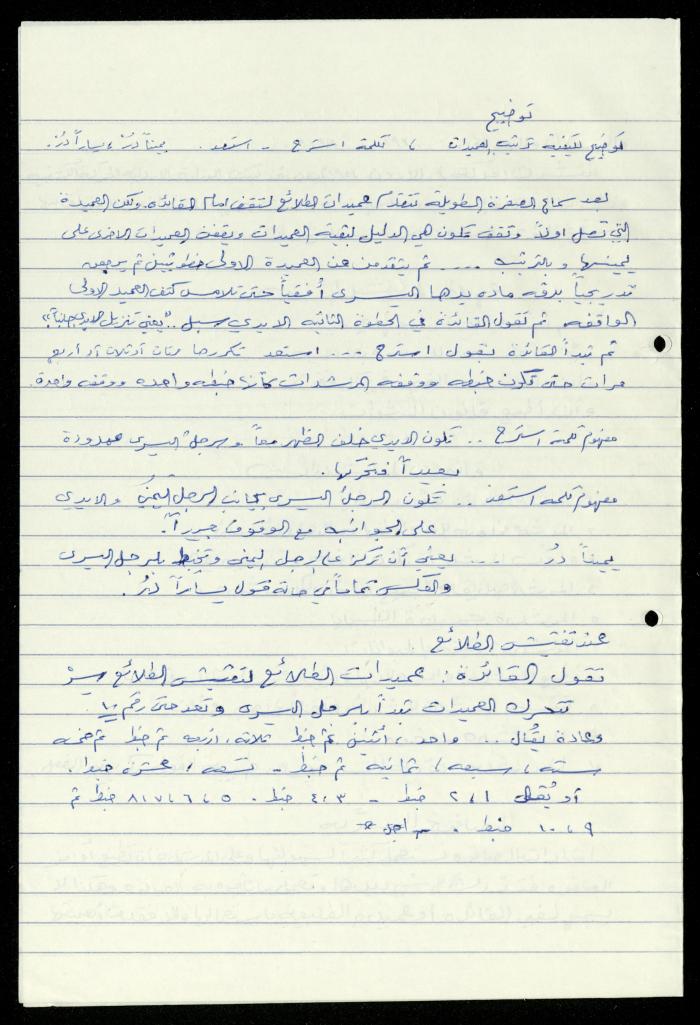 توضيح
توضيح لكيفية ترتيب العميدات ، كلمة استرح - استعد . يميناً دُرْ ، يساراً دُرْ.
بعد سماع الصفرة الطويلة تتقدم عميدات الطلائع لتقف امام القائدة. وتكن العميدة
التي تصل اولاً وتقف تكون هي الدليل لبقية العميدات وتقف العميدات الاخرى على
يمينها وبالترتيب .... ثم يتقدمن عن العميدة الاولى خطوتين ثم يرجعن
تدريجياً بدقه ماده يدها اليسرى أفقياً حتى تلامس كتف العميد الاولى
الواقفه ثم تقول القائدة في الخطوة الثانيه الايدي سبل .. "يعني تنزيل الايدي جانباً"
ثم تبدأ القائدة بقول استرح ... استعد تكررها مرات أوثلاث أو أربع
مرات حتى تكون خبطه ووقفه المرشدات كأنها خبطه واحده ووقفه واحدة.
مفهوم كلمة استرح .. تكون الايدي خلف الظهر معاً والرجل اليسرى ممدودة
بعيداً فتحركها .
مفهوم كلمه استعد .. تكون الرجل اليسرى بجانب الرجل اليمنى والايدي
على الجوانب مع الوقوف جيداً.
يميناً دُر .... يعني أن تركز على الرجل اليمنى وتخبط بالرجل اليسرى
والعكس تماماً في حالة قول يساراً دُرْ .
عند تفتيش الطلائع
تقول القائدة : عميدات الطلائع لتفتيش الطلائع سِرْ
تتحرك العميدات تبدأ بالرجل اليسرى وتعد حتى رقم ١٠
وعادة يُقال .. واحد ، أثنين ثم خبط ثلاثه ، اربعه ثم خبط ثم خمسه
سته ، سبعه ، ثمانيه ثم خبط - تسعه ، عشره خبط .
أو يُقال ١ ، ٢ خبط - ٣ ، ٤ خبط . ٥ ، ٦ ، ٧ ، ٨ خبط ثم
٩ ، ١٠ خبط .